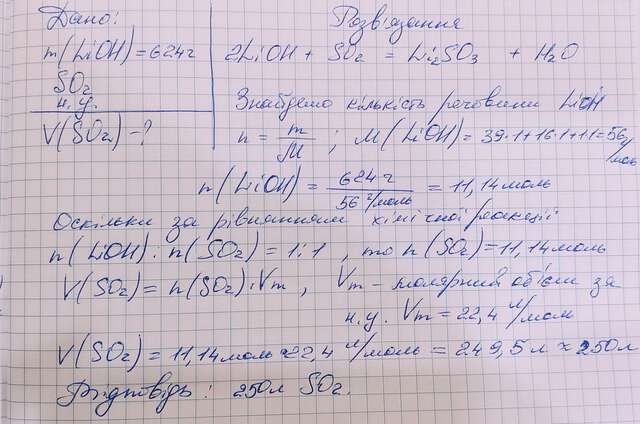 Дано:
m(LiOH)=624г
SO₂
н.у.
V(SO₂)-?
Розв'язання
2LiOH + SO₂ = Li₂SO₃ + H₂O
Знайдемо кількість речовини LiOH
n = m/M ; M(LiOH)=39·1+16·1+1·1=56 г/моль
n(LiOH) = 624г / 56 г/моль = 11,14моль
Оскільки за рівнянням хімічної реакції
n(LiOH):n(SO₂)=1:1, то n(SO₂)=11,14моль
V(SO₂)=n(SO₂)·Vm, Vm - молярний об'єм за
н.у. Vm=22,4 л/моль
V(SO₂)=11,14моль·22,4 л/моль=249,5л≈250л
Відповідь: 250л SO₂.